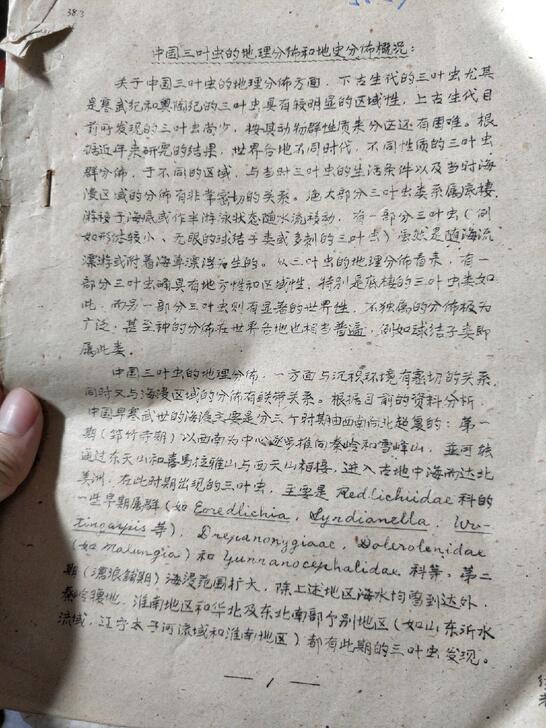 中国三叶虫的地理分佈和地史分佈概况：
关于中国三叶虫的地理分佈方面，下古生代的三叶虫尤其
是寒武纪和奥陶纪的三叶虫具有较明显的区域性，上古生代目
前所发现的三叶虫尚少，按其动物群性质来分区还有困难。根
据近年来研究的结果，世界各地不同时代，不同性质的三叶虫
群分佈，于不同的区域，与当时三叶虫的生活条件以及当时海
漫区域的分佈有非常密切的关系。绝大部分三叶虫类系属底棲，
游移于海底或作半游泳状态随水流移动，有一部分三叶虫（例
如形体较小、无眼的球结子类或多刺的三叶虫）虽然是随海流
漂游或附着海草漂浮为生的。从三叶虫的地理分佈看来，有一
部分三叶虫确具有地方性和区域性，特别是底棲的三叶虫类如
此，而另一部分三叶虫则有显著的世界性，不独属的分佈极为
广泛，甚至种的分佈在世界各地也相当普遍，例如球结子类即
属此类。
中国三叶虫的地理分佈，一方面与沉积环境有密切的关系，
同时又与海漫区域的分佈有联带关系。根据目前的资料分析，
中国早寒武世的海漫主要是分三个时期由西南向北超复的：第一
期（筇竹寺期）以西南为中心逐步推向秦岭和雪峰山，並可能
通过东天山和喜馬拉雅山与西天山相接，进入古地中海而达北
美洲，在此时期出现的三叶虫，主要是 Redlichiidae 科的
一些早期属群（如 Eoredlichia, Syndianella, Wu-
tingaspis 等），Drepanopygiaae, Dolerolenidae
（如 Malungia）和 Yunnanocephalidae 科等。第二
期（滄浪舖期）海漫范围扩大，除上述地区海水均嘗到达外，
秦岭穆地、淮南地区和华北及东北南部个别地区（如山东沂水
流域，辽宁太子河流域和淮南地区）都有此期的三叶虫发现。
— 1 —